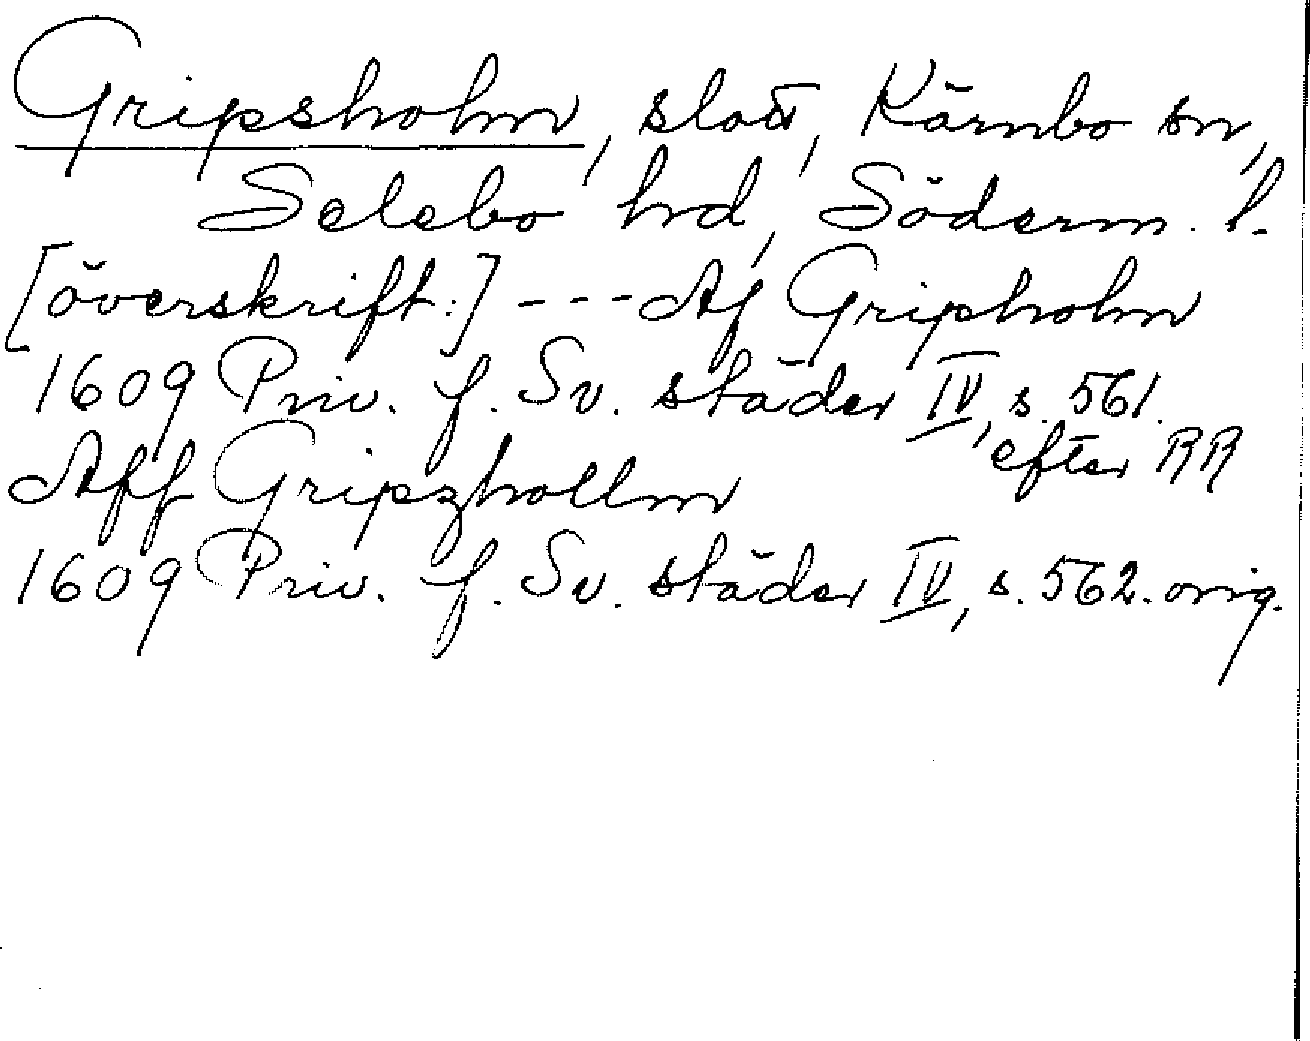 Gripsholm, slott, Kärnbo sn,
Selebo hd, Söderm. l.
[överskrift:] --- Af Gripholm
1609 Priv. f. Sv. städer IV, s. 561.
efter RR
Aff Gripzhollm
1609 Priv. f. Sv. städer IV, s. 562. orig.